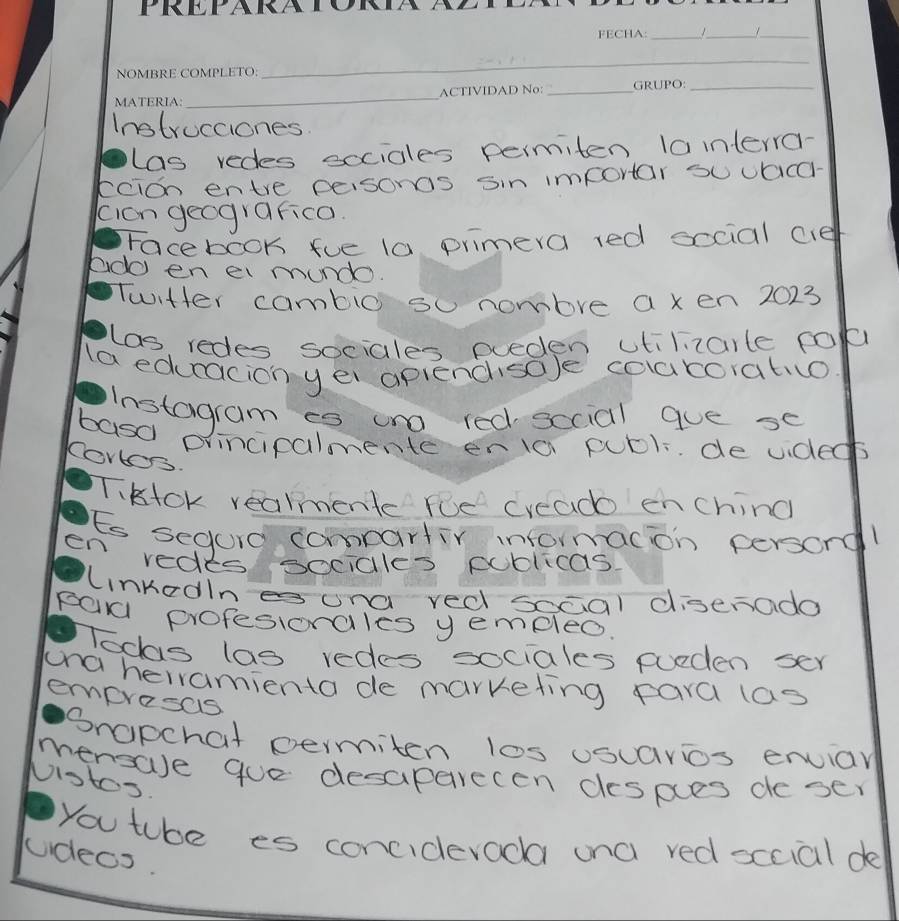 PREPARATORIA AZTLAN DE JUAREZ
FECHA: ______/______/______
NOMBRE COMPLETO:
MATERIA: ACTIVIDAD No: GRUPO:
Instrucciones.
Las redes sociales permiten la interra-
cción entre personas sin importar su ubica-
cion geografica.
Facebook fue la primera red social cre
ado en el mundo.
Twitter cambio su nombre a x en 2023
Las redes sociales pueden utilizarte para
la educacion y el aprendisaje colaborativo.
Instagram es una red social que se
basa principalmente en la publi. de videos
Cortos.
Tiktok realmente fue creado en china
Es seguro compartir informacion personal
en redes sociales publicas.
LinkedIn es una red social diseñado
para profesionales y empleo.
Todas las redes sociales pueden ser
una herramienta de marketing para las
empresas
Snapchat permiten los usuarios enviar
mensaje que desaparecen despues de ser
vistos.
You tube es conciderada una red social de
videos.
AZTLAN